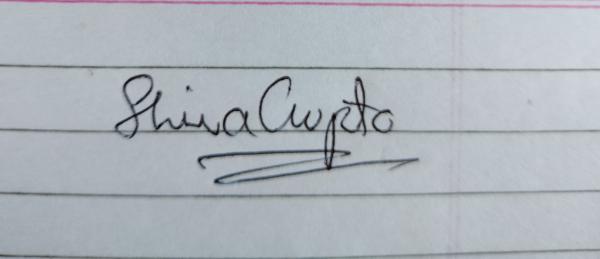 Shiva Gupta